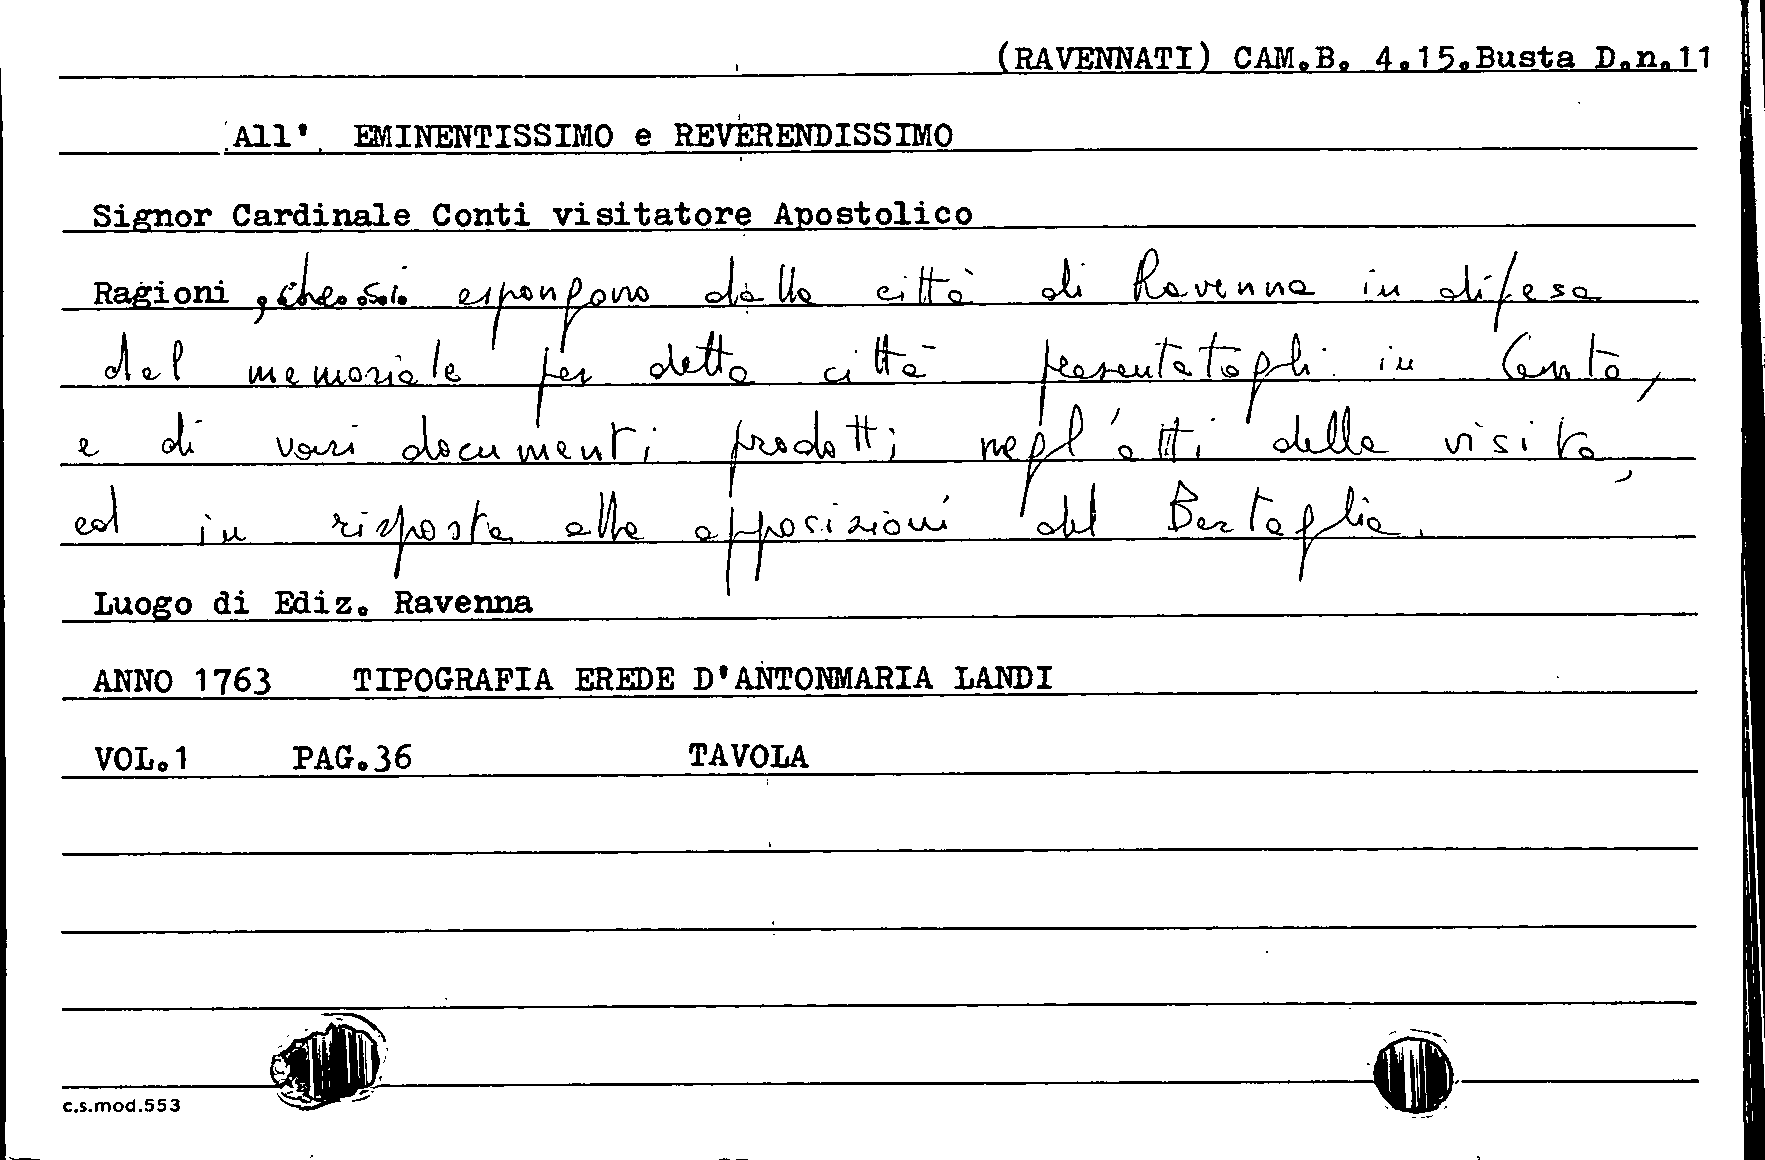 (RAVENNATI) CAM.B. 4.15.Busta D.n.11
All' EMINENTISSIMO e REVERENDISSIMO
Signor Cardinale Conti visitatore Apostolico
Ragioni, che si espongono dalla città di Ravenna in difesa
del memoriale per detta città presentatogli in Cento,
e di vari documenti prodotti negl'atti della visita,
ed in risposta alle opposizioni del Bertaglia.
Luogo di Ediz. Ravenna
ANNO 1763 TIPOGRAFIA EREDE D'ANTONMARIA LANDI
VOL.1 PAG.36 TAVOLA
c.s.mod.553